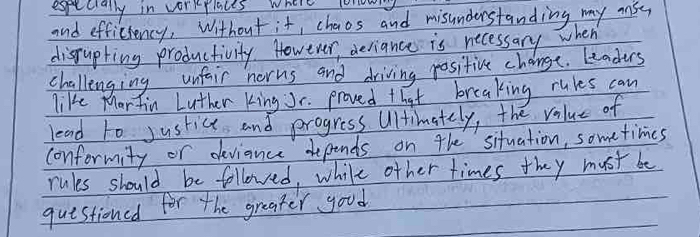 especially in workplaces where
and efficiency, Without it, chaos and misunderstanding may arise,
disrupting productivity However, deviance is necessary when
challenging unfair norns and driving positive change. Leaders
like Martin Luther King Jr. proved that breaking rules can
lead to justice and progress Ultimately, the value of
conformity or deviance depends on the situation, sometimes
rules should be followed, while other times they must be
questioned for the greater good